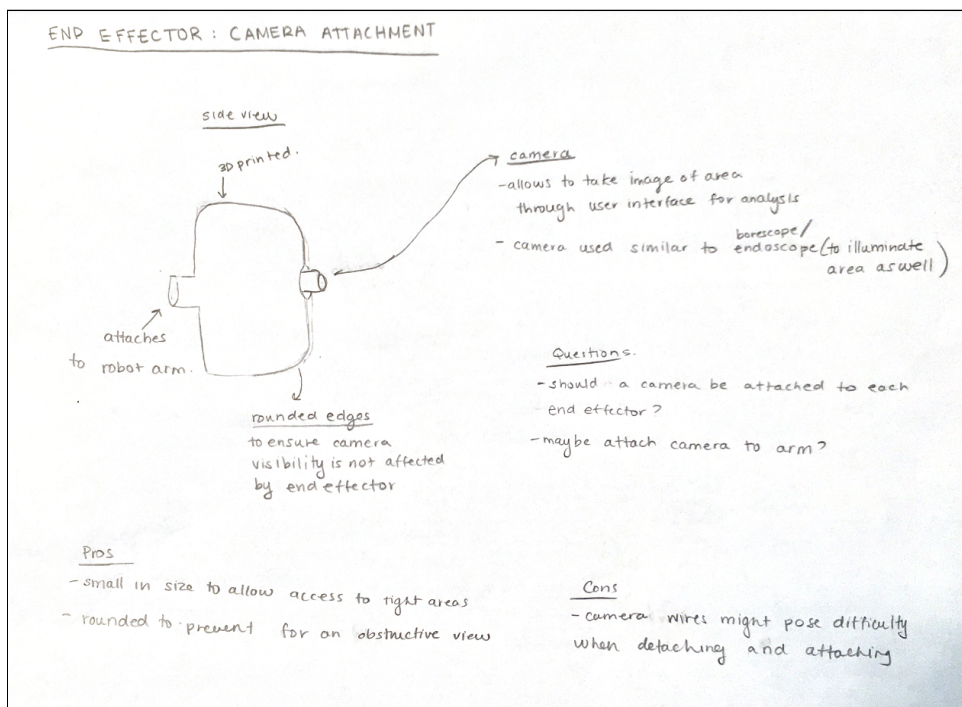 END EFFECTOR : CAMERA ATTACHMENT
side view
3D printed.
attaches
to robot arm.
rounded edges
to ensure camera
visibility is not affected
by end effector
camera
-allows to take image of area
through user interface for analysis
- camera used similar to borescope/endoscope (to illuminate
area as well)
Questions.
-should a camera be attached to each
end effector?
-maybe attach camera to arm?
Pros
- small in size to allow access to tight areas
- rounded to prevent for an obstructive view
Cons
- camera wires might pose difficulty
when detaching and attaching